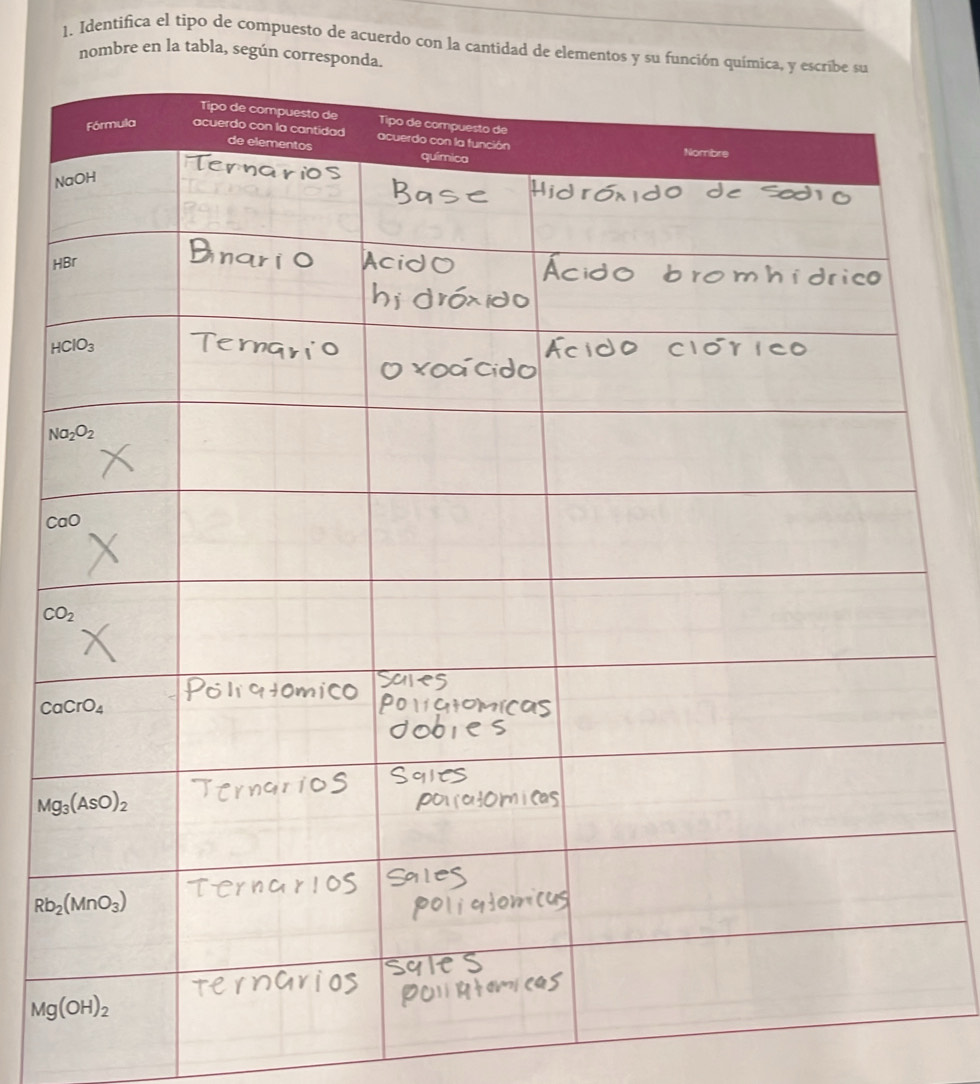 1. Identifica el tipo de compuesto de acuerdo con la cantidad de elementos y su función química, y escribe su
nombre en la tabla, según corresponda.
Fórmula
Tipo de compuesto de
acuerdo con la cantidad
de elementos
Tipo de compuesto de
acuerdo con la función
química
Nombre
NaOH
Ternarios
Base
Hidróxido de sodio
HBr
Binario
Acido
hidróxido
Ácido bromhidrico
HClO₃
Ternario
oxoácido
Ácido clórico
Na₂O₂
X
CaO
X
CO₂
X
CaCrO₄
Poliatomico
Sales
poliatomicas
dobles
Mg₃(AsO)₂
Ternarios
Sales
Rb₂(MnO₃)
Ternarios
sales
poliatomicas
Mg(OH)₂
Ternarios
sales
poliatomicas